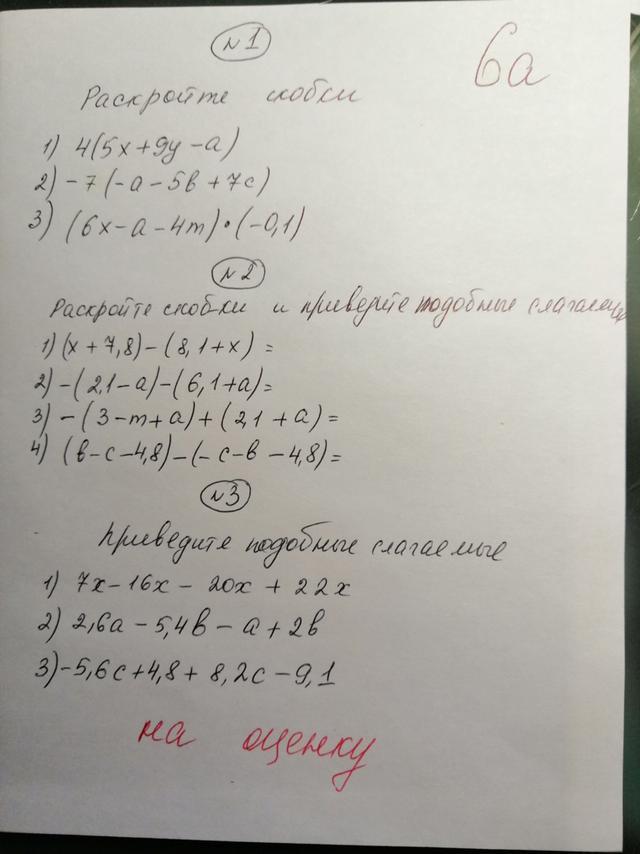 №1
6а
Раскройте скобки
1) 4(5x+9y-a)
2) -7(-a-5в+7c)
3) (6x-a-4m)·(-0,1)
№2
Раскройте скобки и приведите подобные слагаемые
1) (x+7,8)-(8,1+x)=
2) -(2,1-a)-(6,1+a)=
3) -(3-m+a)+(2,1+a)=
4) (в-c-4,8)-(-c-в-4,8)=
№3
Приведите подобные слагаемые
1) 7x-16x-20x+22x
2) 2,6a-5,4в-a+2в
3) -5,6c+4,8+8,2c-9,1
на оценку